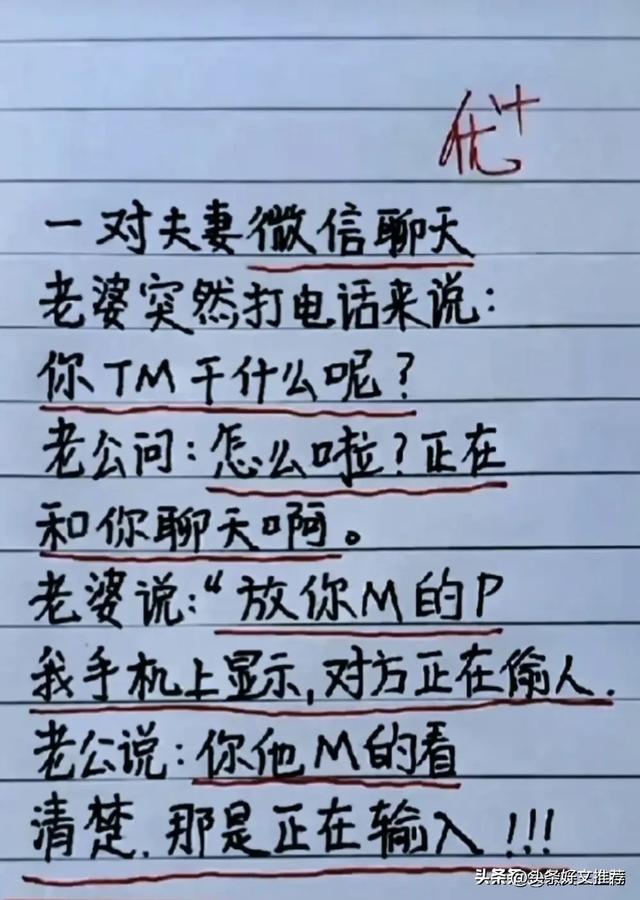 优+
一对夫妻微信聊天
老婆突然打电话来说：
你TM干什么呢？
老公问：怎么啦？正在
和你聊天啊。
老婆说：“放你M的P
我手机上显示，对方正在偷人．
老公说：你他M的看
清楚．那是正在输入！！！
头条@头条好文推荐